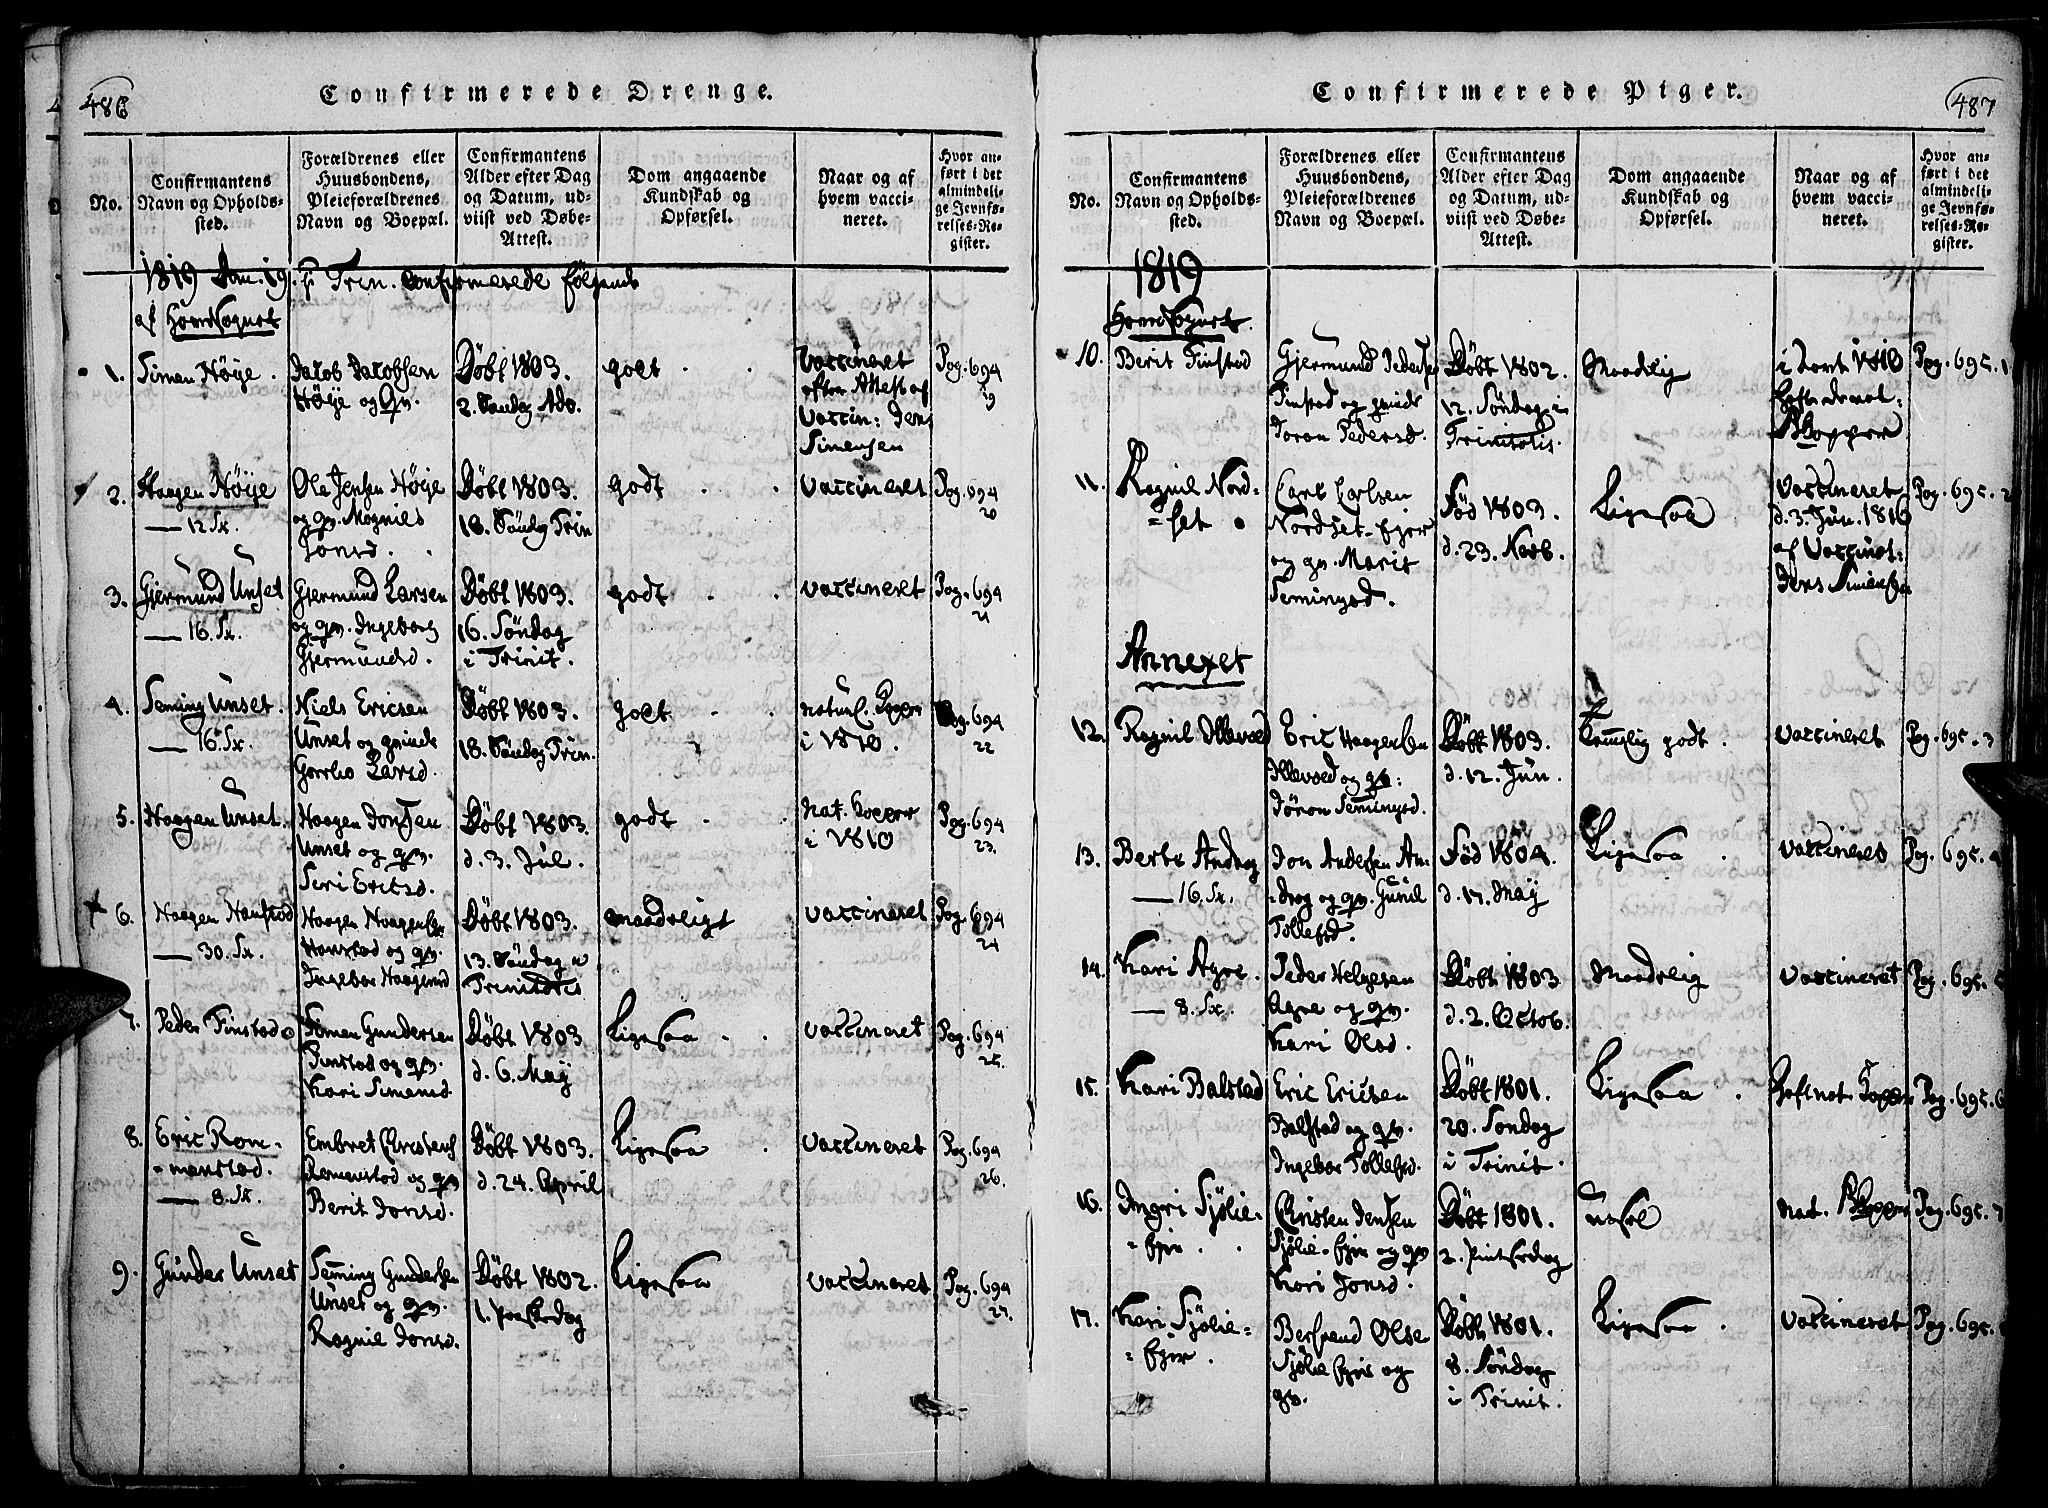 486
Confirmerede Drenge.
No.
Confirmantens
Navn og Opholds-
sted.
Forældrenes eller
Huusbondens,
Pleieforældrenes
Navn og Boepæl.
Confirmantens
Alder efter Dag
og Datum, ud-
viist ved Døbe-
Attest.
Dom angaaende
Kundskab og
Opførsel.
Naar og af
hvem vacci-
neret.
Hvor an-
ført i det
almindeli-
ge Jevnfø-
relses-Re-
gister.
1819 Dom. 19. p Trin. confirmerede følgende
af Hovedsognet
1.
Simen Høye.
Jacob Jacobsen
Høye og Qv.
Døbt 1803.
2. Søndag Adv.
godt
Vaccineret
efter Attest af
Vaccin: Jens
Simensen
Pag. 694
19
2.
Haagen Høye
— 12 Sk.
Ole Jensen Høye
og qv. Magnild
Jonsd.
Døbt 1803.
18. Søndag Trin
godt
vaccineret
Pag. 694
20
3.
Gjermund Unset
— 16. Sk.
Gjermund Larsen
og qv. Ingeborg
Gjermundsd.
Døbt 1803.
16. Søndag
i Trinit.
godt
vaccineret
Pag. 694
21
4.
Seming Unset.
— 16. Sk.
Niels Ericsen
Unset og qvinde
Larsd.
Døbt 1803.
18. Søndag Trin.
godt
naturl. Kopper
i 1810.
Pag. 694
22
5.
Haagen Unset.
Haagen Jonsen
Unset og qv.
Seri Ericsd.
Døbt 1803.
d. 3. Jul.
godt
Nat. Kopper
i 1810
Pag. 694
23.
6.
Haagen Hanstad
— 30. Sk.
Haagen Haagensen
Hanstad og qv.
Ingebor Haagensd
Døbt 1803.
13. Søndag i
Trinitatis
maadeligt
vaccineret
Pag. 694
24
7.
Peder Finstad
Simen Gundersen
Finstad og qv.
Kari Simensd
Døbt 1803
d. 6. Maj
Ligesaa
vaccineret
Pag. 694
25.
8.
Eric Rom-
menstad.
— 8. Sk.
Embret Christens
Romenstad og qv
Berit Jonsd.
Døbt 1803.
d. 24. April
Ligesaa
vaccineret
Pag. 694
26.
9.
Gunder Unset
Seming Gundersen
Unset og qv.
Ragnil Jonsd.
Døbt 1802.
1. Paaskedag
Ligesaa
vaccineret
Pag. 694
27.
Confirmerede Piger.
487
No.
Confirmantens
Navn og Opholds-
sted.
Forældrenes eller
Huusbondens,
Pleieforældrenes
Navn og Boepæl.
Confirmantens
Alder efter Dag
og Datum, ud-
viist ved Døbe-
Attest.
Dom angaaende
Kundskab og
Opførsel.
Naar og af
hvem vacci-
neret.
Hvor an-
ført i det
almindeli-
ge Jevnfø-
relses-Re-
gister.
1819
Hovedsognet.
10.
Berit Finstad
Gjermund Peders
Finstad og qvinde
Joran Pedersd.
Døbt 1802.
12. Søndag i
Trinitatis.
Maadelig
1810
Kopper
Pag. 695. 1
11.
Ragnil Nord=
=set
Carl Carlsen
Nordset-Ejer
og qv. Marit
Semingsd.
Fød 1803.
d. 23. Novb.
Ligesaa
vaccineret
d. 3. Jun. 1816
af Vaccinat:
Jens Simensen
Pag. 695. 2
Annexet
12.
Ragnil Illevold
Eric Haagensen
Illevold og qv:
Jöran Semingsd.
Døbt 1803.
d. 12. Jun.
Temmelig godt.
vaccineret
Pag. 695. 3
13.
Berte Andrag
— 16. Sk.
Jon Andersen An=
=drag og qv. Gunil
Tollefsd.
Fød 1804.
d. 17. Maj
Ligesaa
vaccineret
Pag. 695. 4
14.
Kari Agre
— 8. Sk.
Peder Helgesen
Agre og qv.
Kari Olsd.
Døbt 1803
d. 2. Octob.
Maadelig
vaccineret
Pag. 695. 5
15.
Kari Balstad
Eric Ericsen
Balstad og qv.
Ingebor Tollefsd.
Døbt 1801.
20. Søndag
i Trinit.
Ligesaa
Haft nat. Kopper
Pag. 695. 6
16.
Ingri Sjølie=
=Ejer.
Christen Jensen
Sjølie=Ejer og qv
Kari Jonsd.
Døbt 1801.
2. Pintsedag
ussel
Nat. Kopper
Pag. 695. 7
17.
Kari Sjølie=
=Ejer.
Bersvend Olse
Sjølie Ejer og
qv.
Døbt 1801.
8. Søndag
i Trinit.
Ligesaa
vaccineret
Pag. 695.